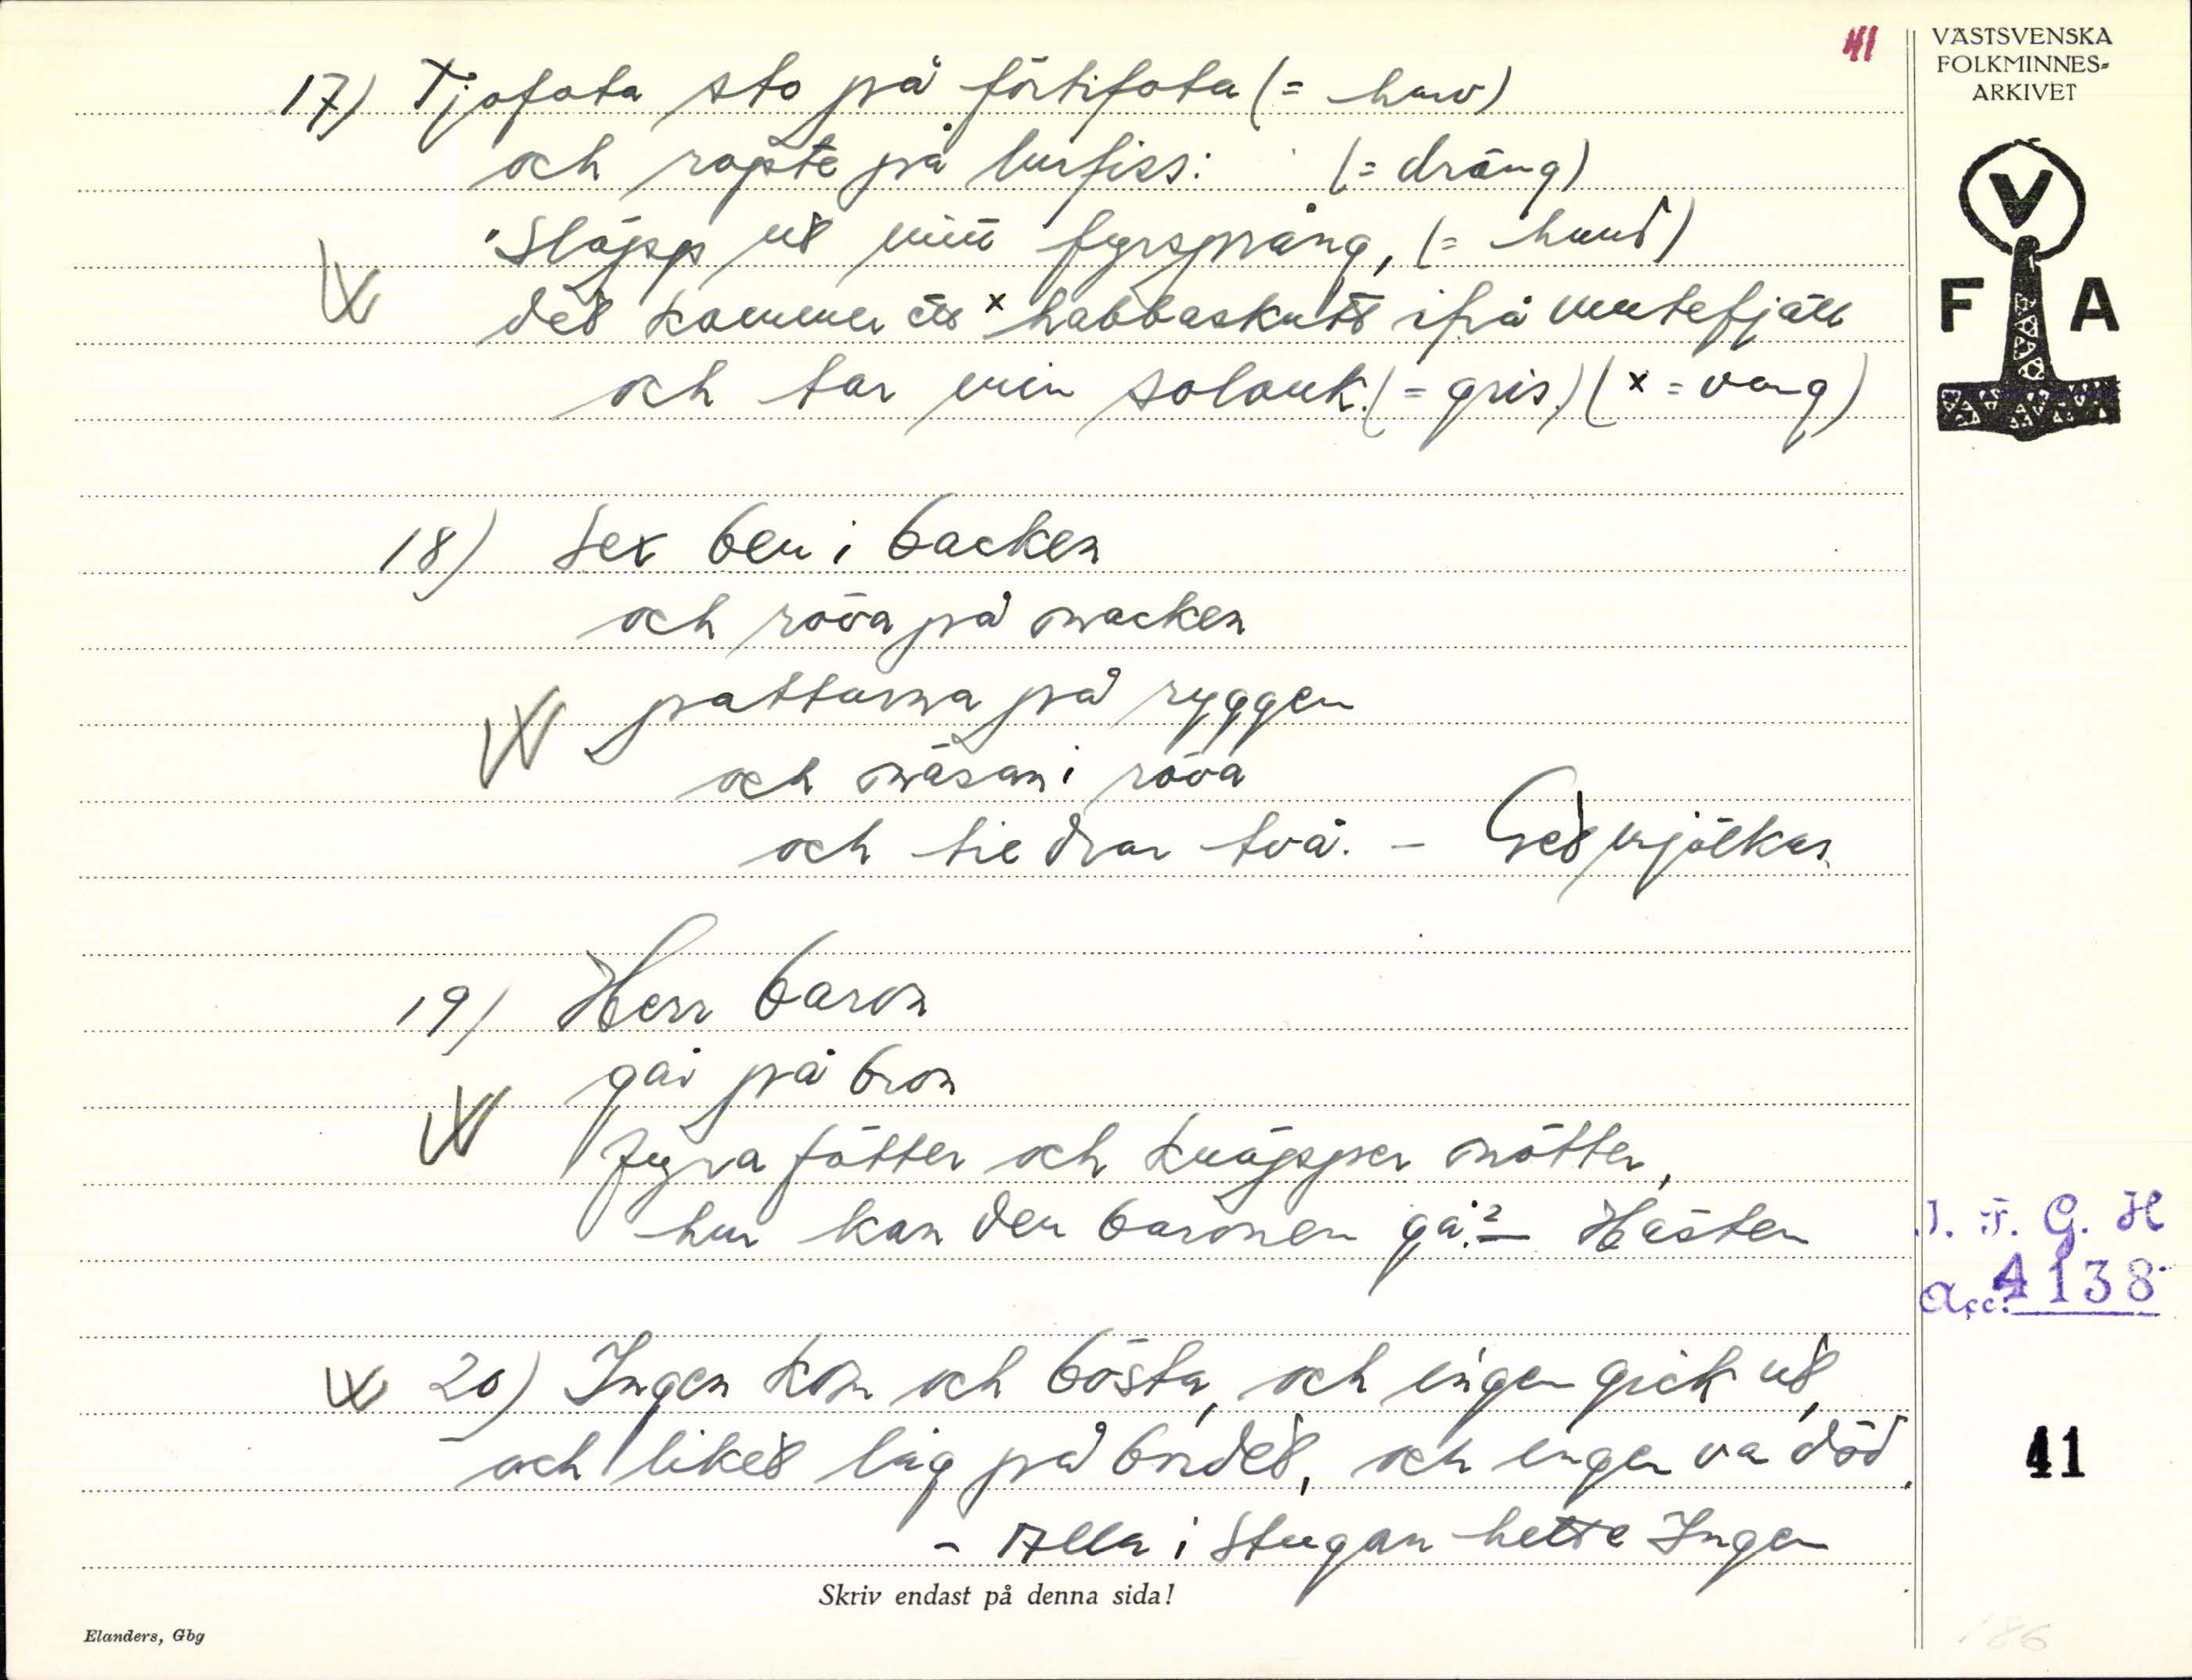 41
VÄSTSVENSKA
FOLKMINNES-
ARKIVET
V
F A
17) Tjofota sto på förtifota (= harv)
och ropte på lurfiss: (= dräng)
"Släpp ut mitt fyrsprång, (= hund)
det kommer ett x habbaskutt ifrå mutefjäll
och tar min solonk. (= gris.) (x = varg)
18) Sex ben i backen
och röva på nacken
pattarna på ryggen
och näsan i röva
och tie drar två. – Get mjölkas.
19) Herr baron
går på bron
fyra fötter och knäpper nötter,
hur kan den baronen gå? – Hästen
20) Ingen kom och bösta, och ingen gick ut,
och liket låg på bordet, och ingen va död.
– Alla i stugan hette Ingen
I. F. G. H
Acc. 4138
41
Skriv endast på denna sida!
Elanders, Gbg
186